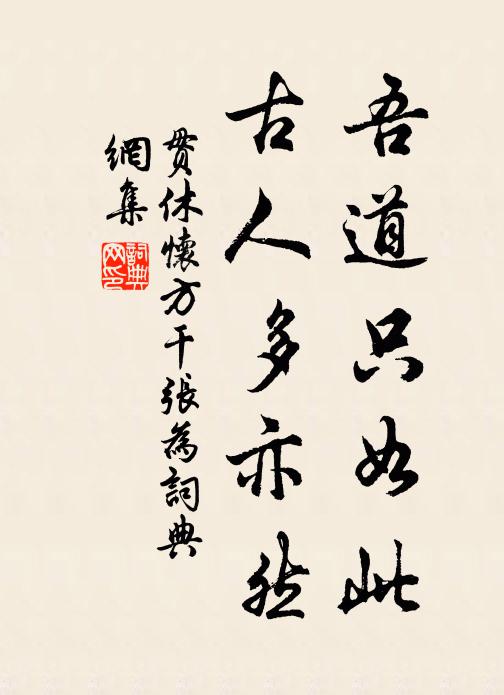 吾道只如此
古人多亦然
貫休懷方干張為詞典
網集
詞典網印